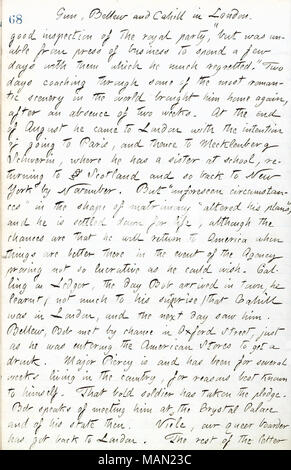 68
Gun, Bellew and Cahill in London.
good inspection of the royal party," but was un-
able from press of business to spend a few
days with them which he much regretted." Two
days coaching through some of the most roman-
tic scenery in the world brought him home again,
after an absence of two weeks. At the end
of August he came to London with the intention
of going to Paris, and thence to Mecklenberg
Schwerin, where he has a sister at school, re-
turning to Scotland and so back to New
York by November. But "unforeseen circumstan-
ces" in the shape of matrimony "altered his plans,"
and he is settled down for life, although the
chances are that he will return to America when
things are better there in the event of the Agency
proving not so lucrative as he could wish. Cal-
ling on Ledger, the day Bob arrived in town, he
learnt, not much to his surprise, that Cahill
was in London, and the next day saw him.
Bellew, Bob met by chance in Oxford Street just
as he was entering the American Stores to get a
drink. Major Percy is and has been for several
weeks living in the country, for reasons best known
to himself. That bold soldier has taken the pledge.
Bob speaks of meeting him at the Crystal Palace
and of his state then. Viele, our queer boarder
has got back to London. The rest of the letter
alamy
Image ID: MAN23C
www.alamy.com